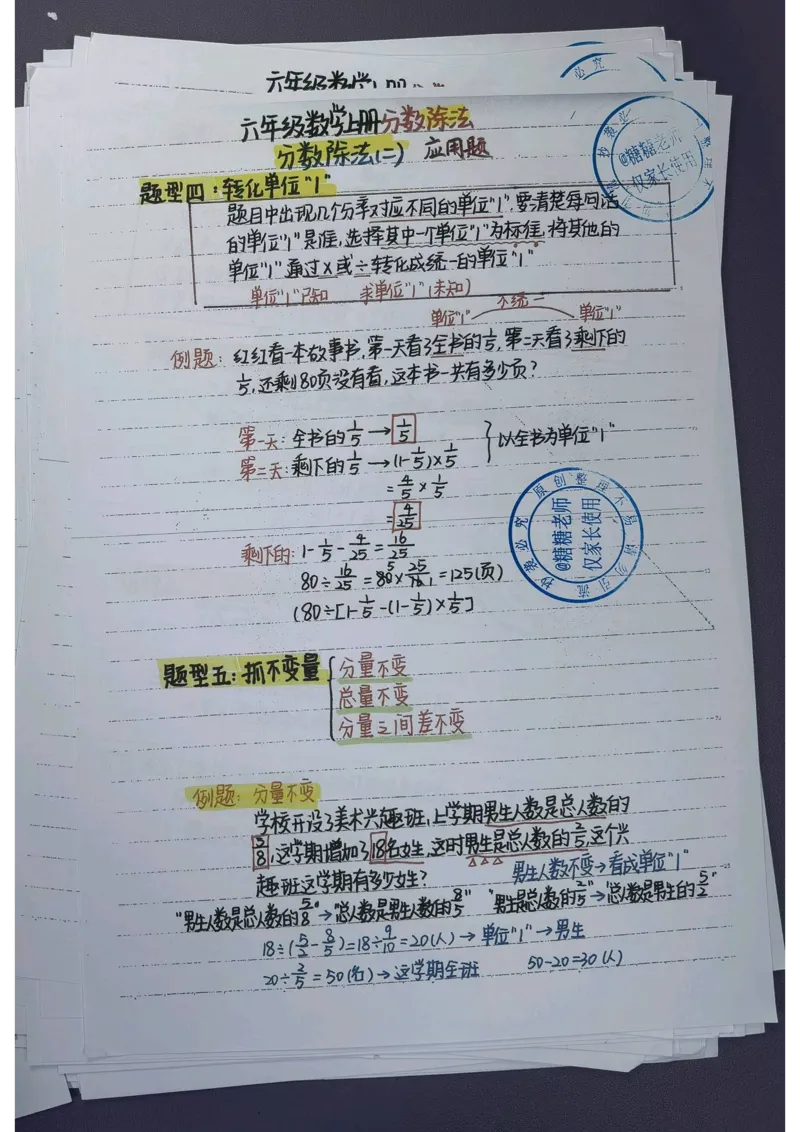 六年级数学上册
六年级数学上册分数除法
分数除法(二) 应用题
题型四：转化单位"1"
题目中出现几个分率对应不同的单位"1"，要清楚每句话
的单位"1"是谁，选择其中一个单位"1"为标准，将其他的
单位"1"通过×或÷转化成统一的单位"1"
单位"1"已知 求单位"1"(未知)
不统一
单位"1" 单位"1"
例题：红红看一本故事书，第一天看了全书的1/5，第二天看了剩下的
1/5，还剩80页没有看，这本书一共有多少页？
第一天：全书的1/5→1/5
第二天：剩下的1/5→(1-1/5)×1/5
以全书为单位"1"
=4/5×1/5
=4/25
剩下的：1-1/5-4/25=16/25
80÷16/25=80×25/16=125(页)
(80÷[1-1/5-(1-1/5)×1/5]
题型五：抓不变量
分量不变
总量不变
分量之间差不变
例题：分量不变
学校开设了美术兴趣班，上学期男生人数是总人数的
5/8，这学期增加了18名女生，这时男生是总人数的2/5，这个兴
趣班这学期有多少女生？
男生人数不变→看成单位"1"
"男生人数是总人数的5/8"→"总人数是男生人数的8/5" "男生是总人数的2/5"→"总人数是男生的5/2"
18÷(5/2-8/5)=18÷9/10=20(人)→单位"1"→男生
20÷2/5=50(名)→这学期全班 50-20=30(人)
@糖糖老师
仅家长使用
原创整理不易 请勿引流 抄袭必究
@糖糖老师
仅家长使用